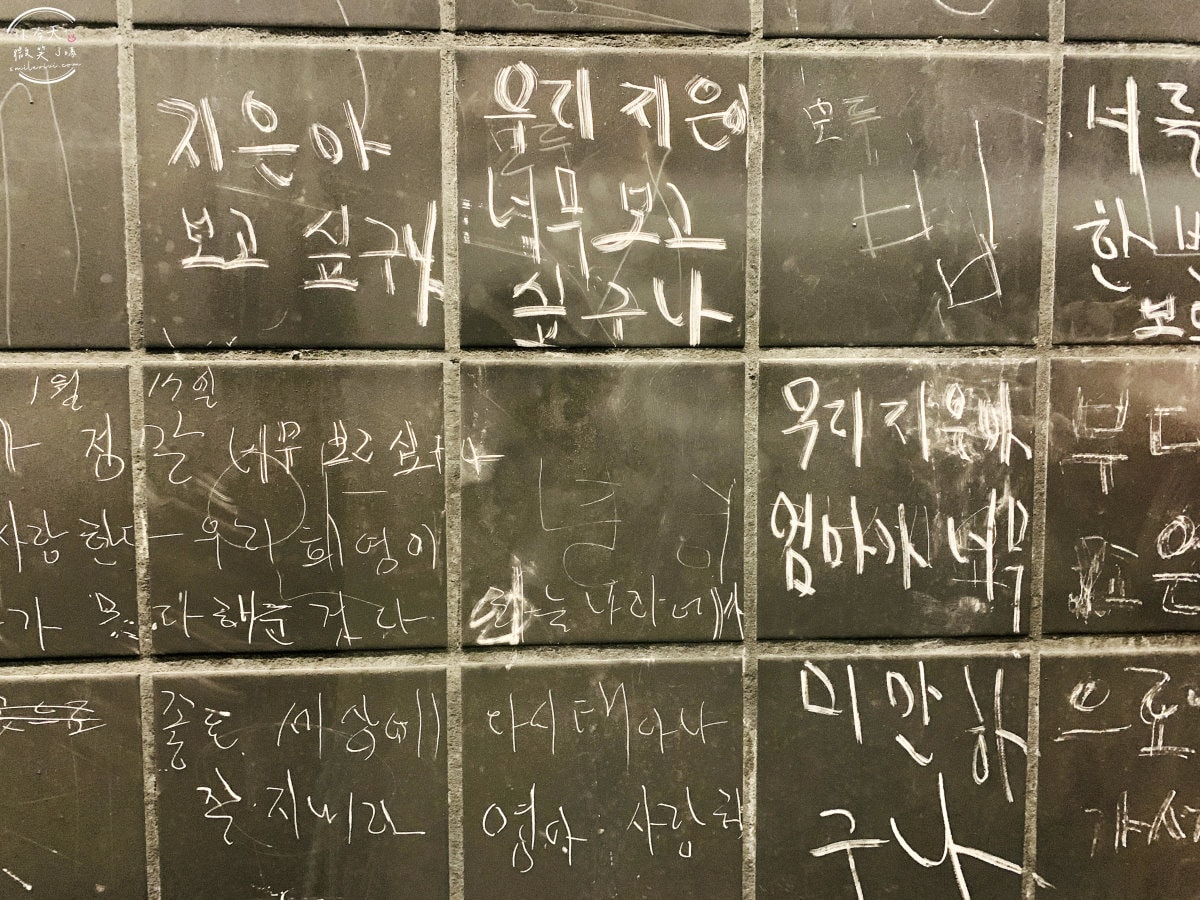 微笑
지은아
보고 싶구나
우리 지은아
너무 보고
싶구나
모두
너를
한번
보
1월 17일
정말 너무 보고 싶구나
사랑한다 우리 희영이
가 못다해준 것 다
하늘나라에서
우리 지은아
엄마가 너무
미안하
구나
부디
좋은
으로
가서
좋은 세상에 다시 태어나
잘 지내라 엄마 사랑해